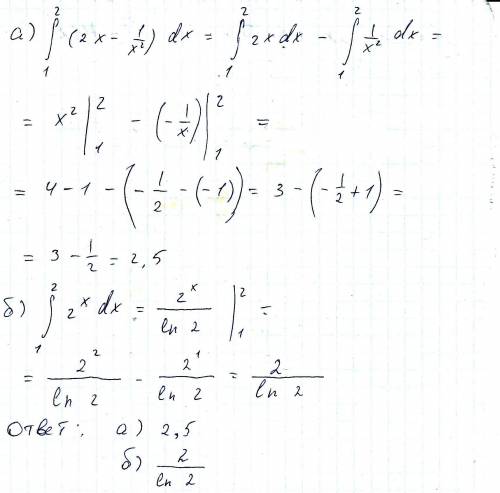 а) ∫₁² (2x − 1/x²) dx = ∫₁² 2x dx − ∫₁² 1/x² dx =
= x² |₁² − (−1/x) |₁² =
= 4 − 1 − (−1/2 − (−1)) = 3 − (−1/2 + 1) =
= 3 − 1/2 = 2,5
б) ∫₁² 2ˣ dx = 2ˣ/ln 2 |₁² =
= 2²/ln 2 − 2¹/ln 2 = 2/ln 2
Ответ: а) 2,5
б) 2/ln 2